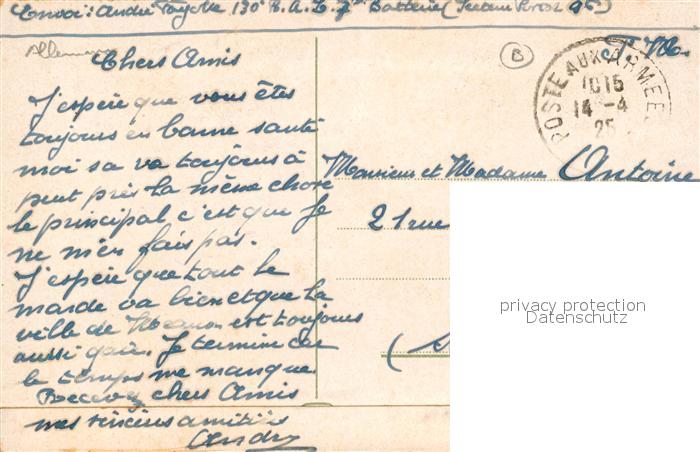 Envoi: André 130e R.A.L. Batterie (Secteur Postal 95)
F. M.
Allemagne
B
Chers Amis
POSTE AUX ARMEES
10 15
14 - 4
25
J'espère que vous êtes
toujours en bonne santé
moi sa va toujours à
peut près la même chose
le principal c'est que je
ne m'en fais pas.
J'espère que tout le
monde va bien et que la
ville de est toujours
aussi gaie. Je termine car
le temps me manque
Recevez chers Amis
mes sincères amitiés
André
Monsieur et Madame Antoine
21 rue
privacy protection
Datenschutz